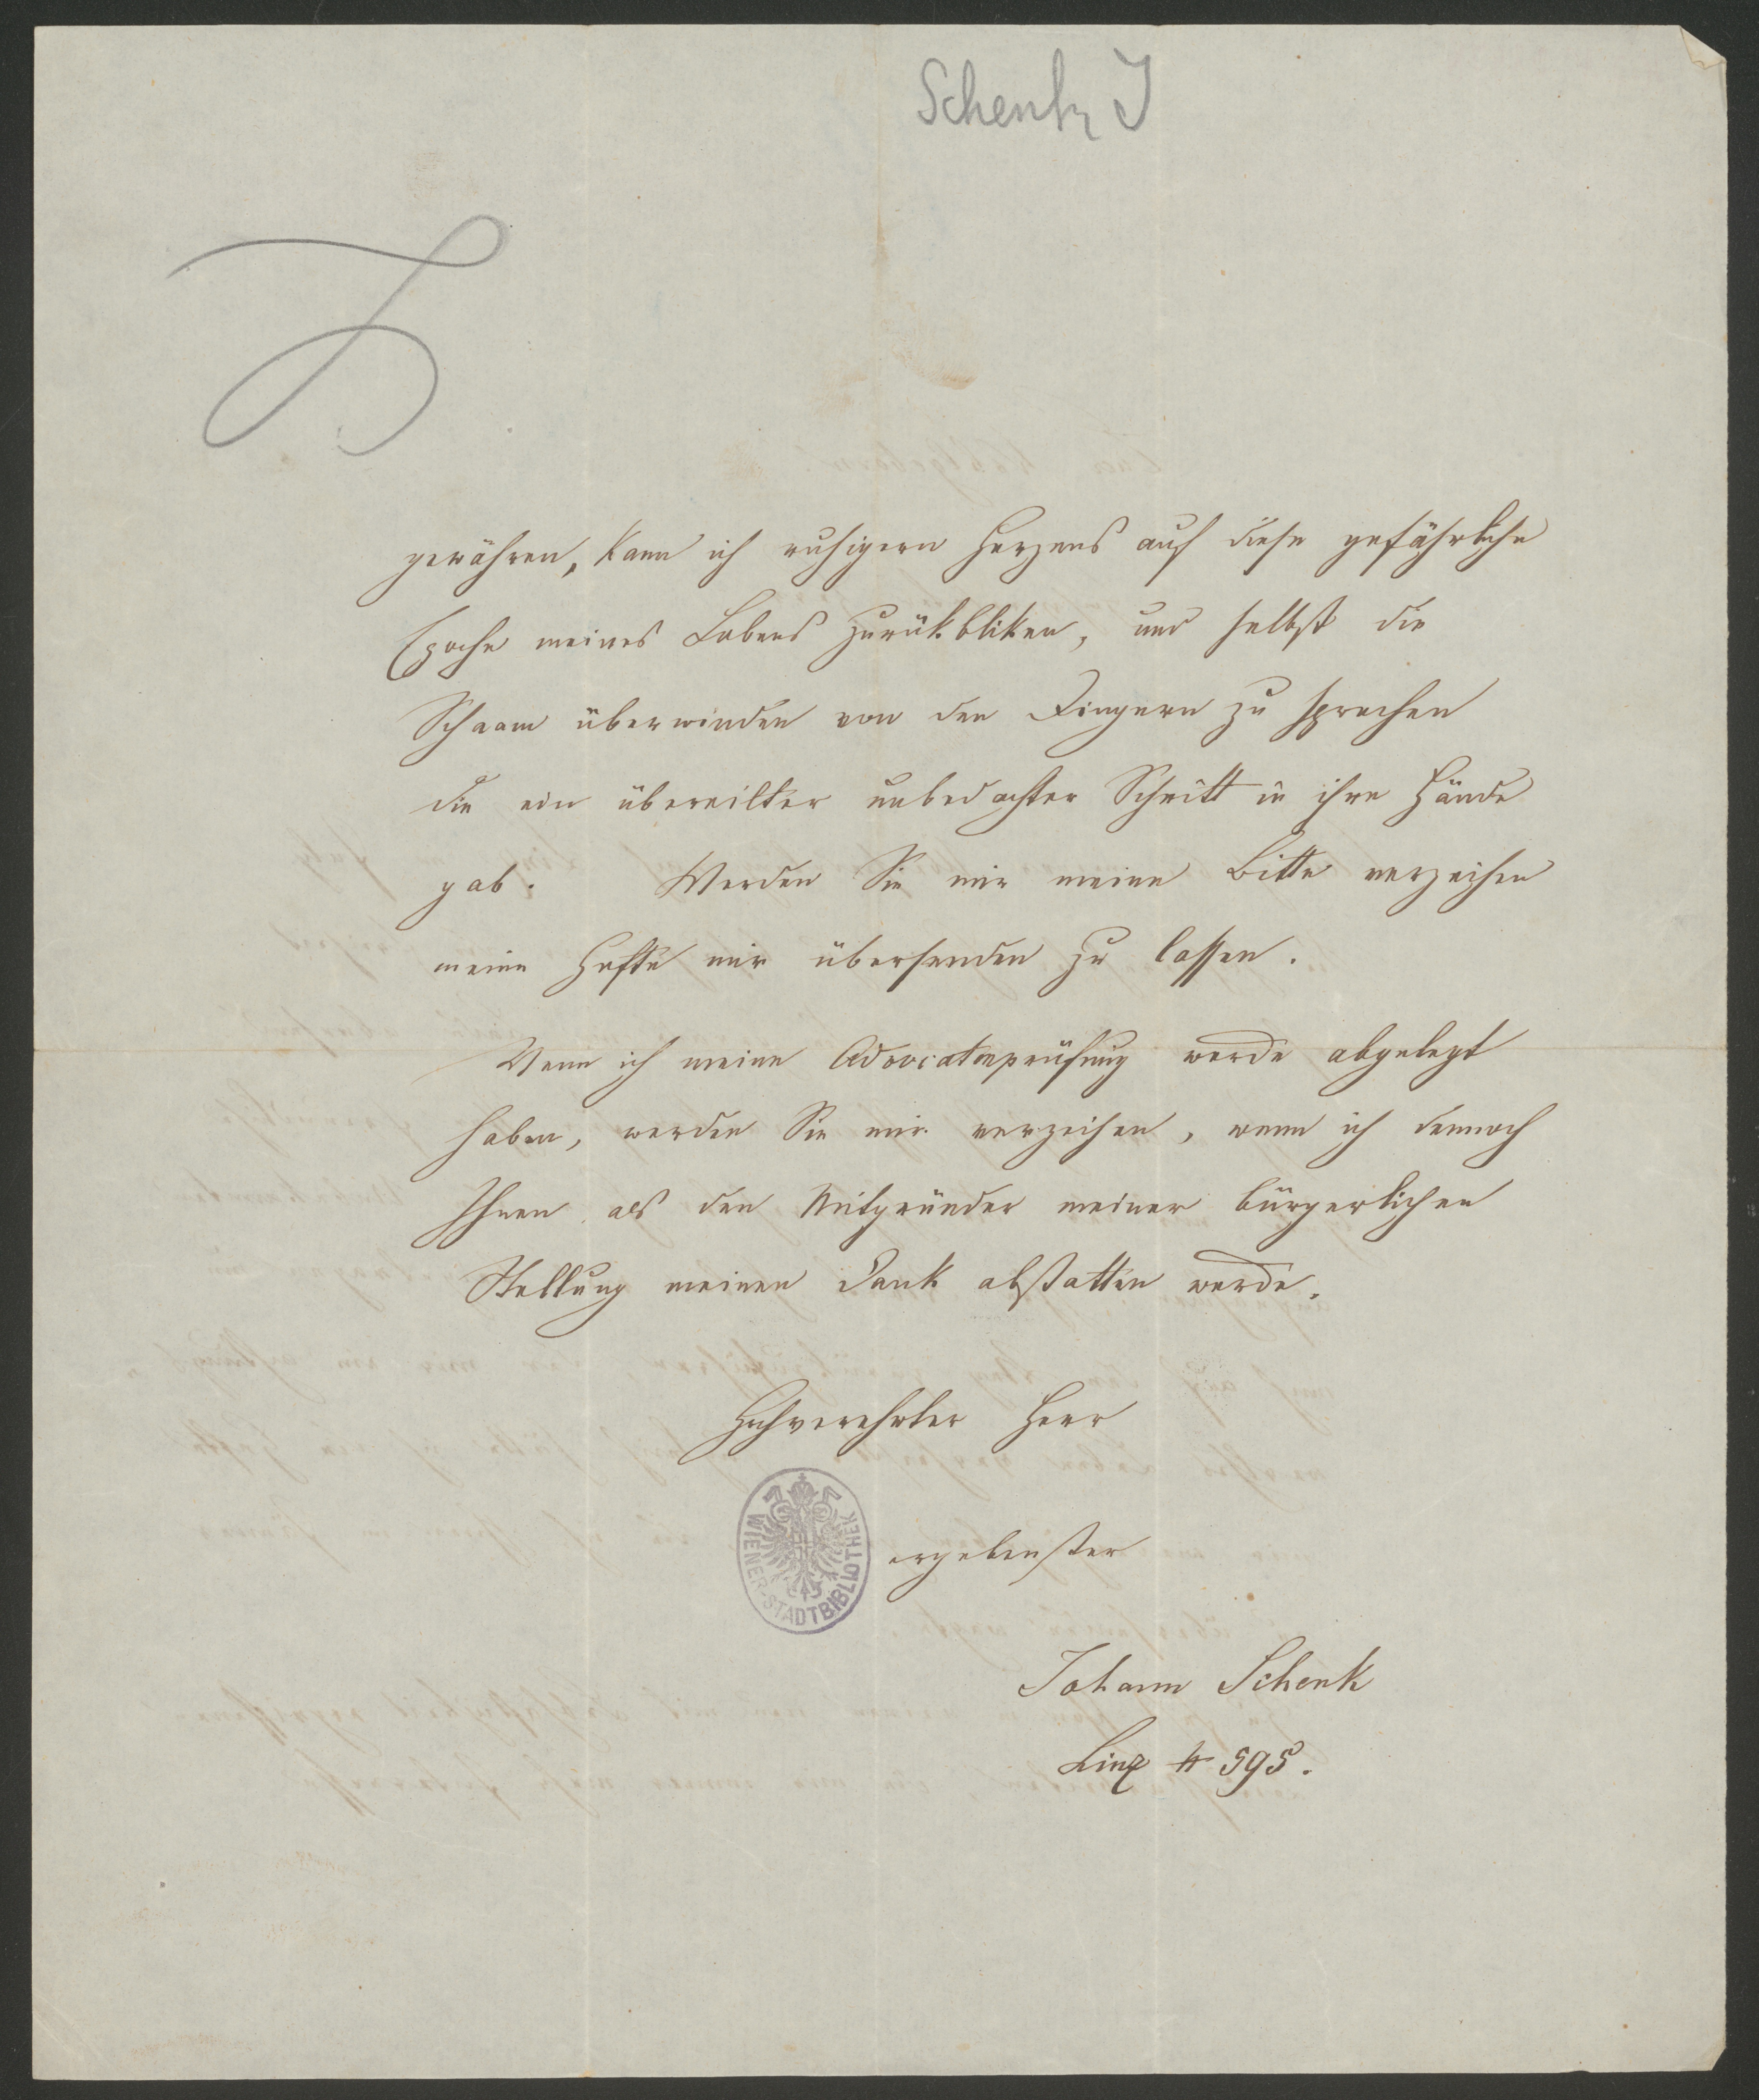 Schenk J
gewähren, kann ich ruhigern Herzens auf diese gefährliche
Epoche meines Lebens zurükbliken, und selbst die
Schaam überwinden von den Dingern zu sprechen
die ein übereilter unbedachter Schritt in ihre Hände
gab. Werden Sie mir meine Bitte verzeihen
meine Hefte mir übersenden zu lassen.
Wenn ich meine Advocatenprüfung werde abgelegt
haben, werden Sie mir verzeihen, wenn ich dennoch
Ihnen als den Mitgründer meiner bürgerlichen
Stellung meinen Dank abstatten werde.
Hochverehrter Herr
WIENER-STADTBIBLIOTHEK
ergebenster
Johann Schenk
Linz # 595.